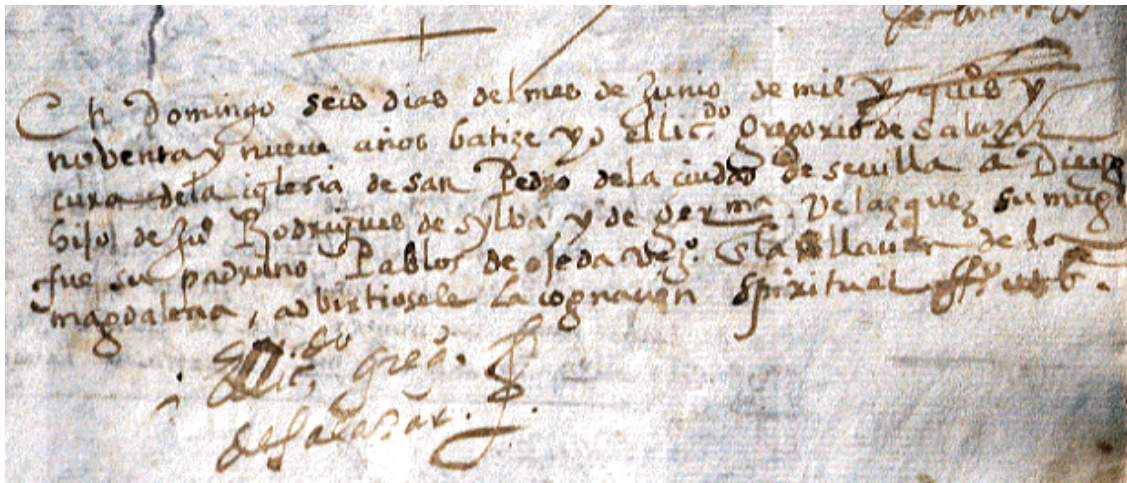 En Domingo seis dias del mes de Junio de mil y quis y
noventa y nueve años batize yo el licdo gregorio de Salazar
cura de la iglesia de san Pedro de la ciudad de sevilla a Diego
hijo de Ju Rodrigues de sylba, y de germa Velazquez su muger
fue su padrino Pablos de ojeda vezo. a la llauer de la
magdalena, adbirtiosele la cognacion spiritual
El licdo greg.
de salazar.